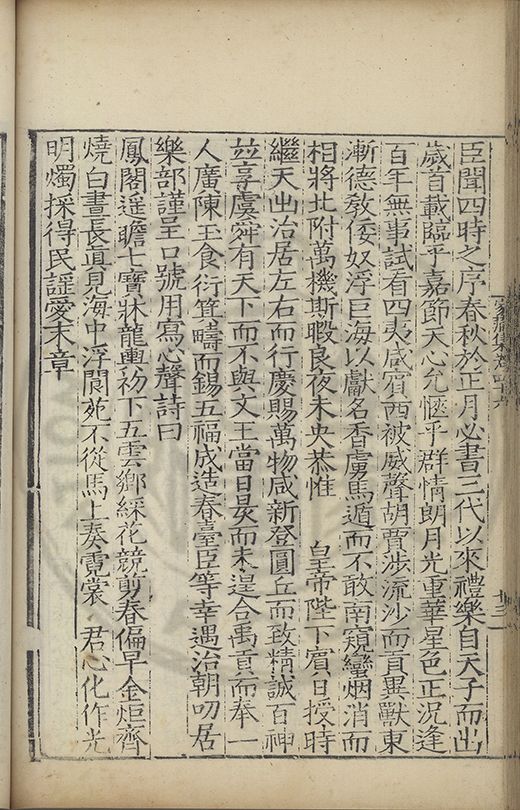 臣聞四時之序春秋於正月必書三代以來禮樂自天子而出
歲首載臨乎嘉節天心允愜乎群情朗月光重華星色正況逢
百年無事試看四夷咸賓西被威聲胡賈涉流沙而貢異獸東
漸德敎倭奴浮巨海以獻名香虜馬遁而不敢南窺蠻烟消而
相將北附萬機斯暇良夜未央恭惟 皇帝陛下賓日授時
繼天出治居左右而行慶賜萬物咸新登圓丘而致精誠百神
並享虞舜有天下而不與文王當日昃而未遑合禹貢而奉一
人廣陳玉食衍箕疇而錫五福咸造春臺臣等幸遇治朝叨居
樂部謹呈口號用寫心聲詩曰
鳳閣遥瞻七寶牀龍輿初下五雲鄉綵花競剪春偏早金炬齊
燒白晝長直見海中浮閬苑不從馬上奏霓裳 君心化作光
明燭採得民謡愛末章